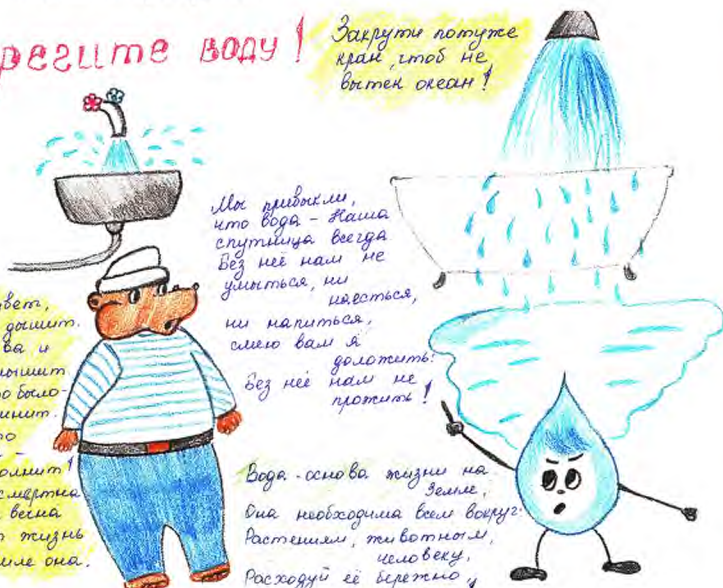 регите воду!
Закрути потуже
кран, чтоб не
вытек океан!
Мы привыкли,
что вода - Наша
спутница всегда
Без неё нам не
умыться, ни
наесться,
ни напиться,
смею вам я
доложить:
Без неё нам не
прожить!
вет,
дышит.
ва и
ышит
о было-
инит.
то
-
олнит!
смертна
весна
т жизнь
иле она.
Вода - основа жизни на
Земле,
Она необходима всем вокруг:
Растениям, животным,
человеку,
Расходуй её бережно,